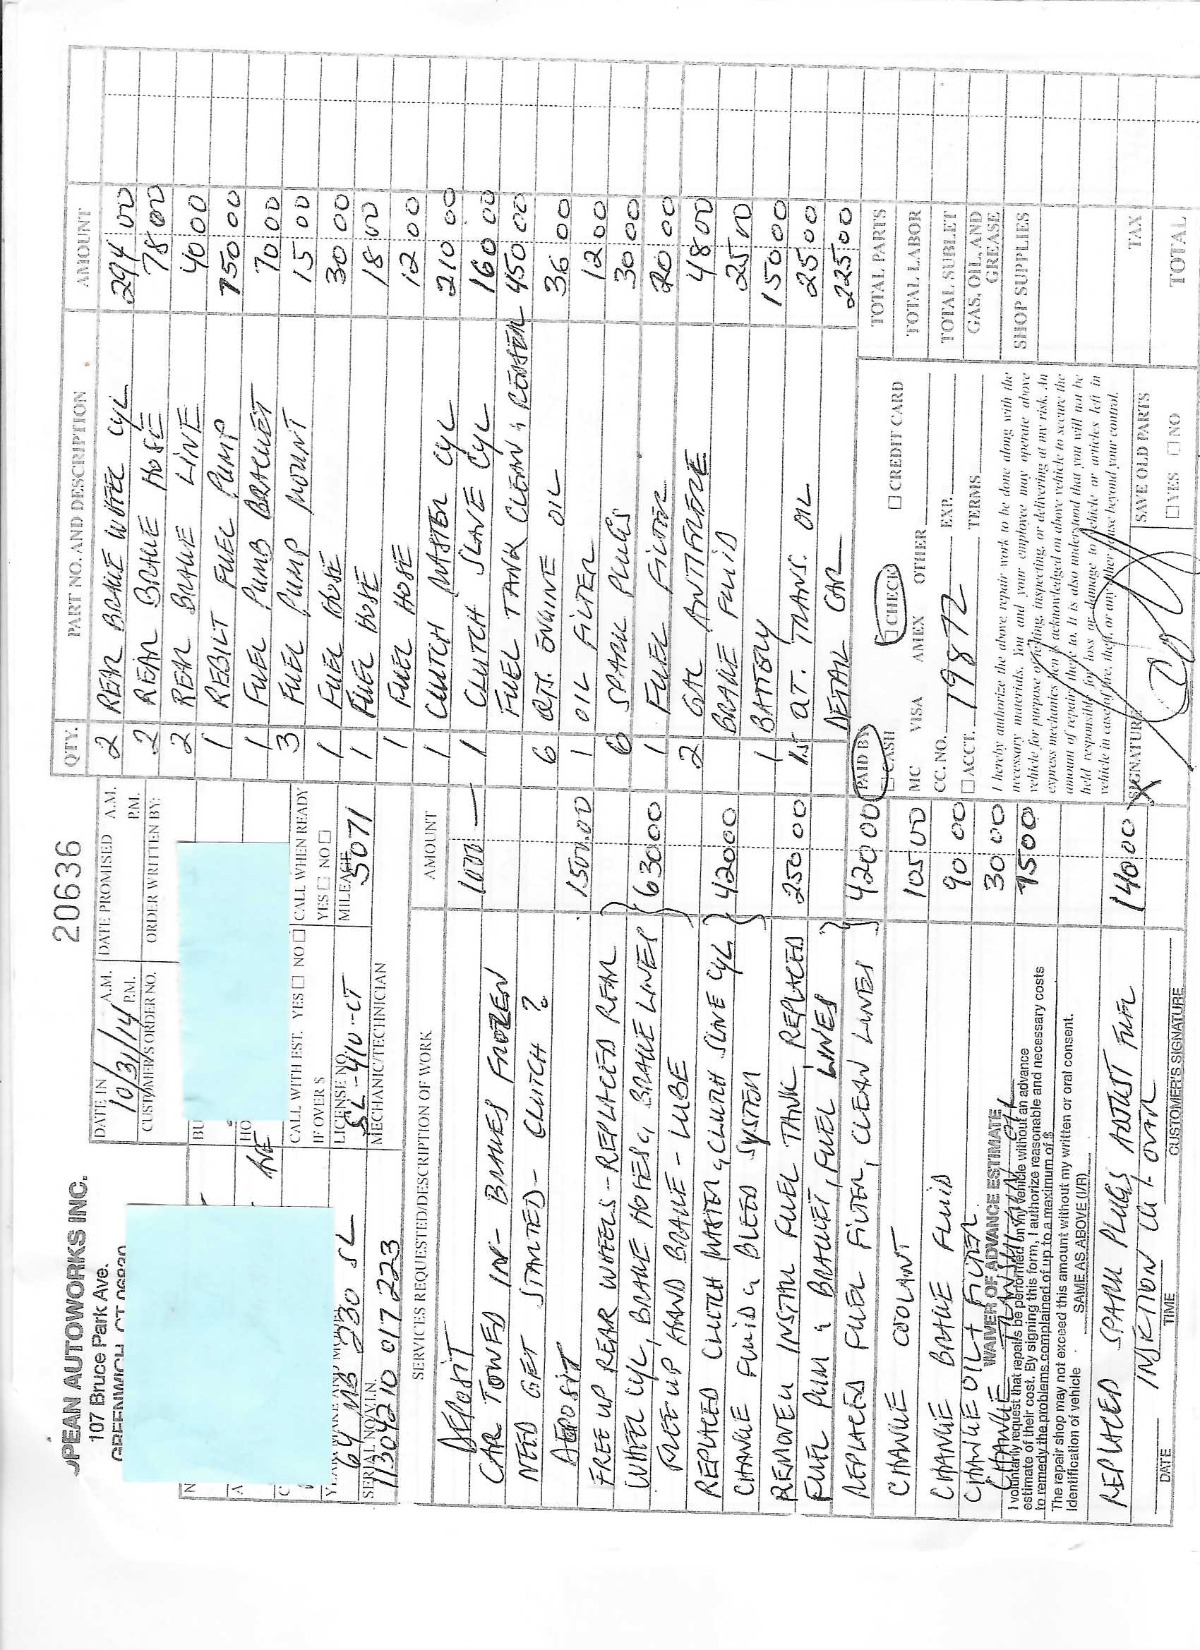 20636
OPEAN AUTOWORKS INC.
107 Bruce Park Ave.
GREENWICH, CT 06830
DATE IN 10/31/14 A.M. P.M.
DATE PROMISED A.M. P.M.
CUSTOMER'S ORDER NO.
ORDER WRITTEN BY:
BU
HO
AVE
N
A
C
CALL WITH EST. YES □ NO □
IF OVER $
CALL WHEN READY
YES □ NO □
YEAR, MAKE AND MODEL
64 MB 230 SL
LICENSE NO.
SL-410-CT
MILEAGE
5071
SERIAL NO./V.I.N.
11304210 017223
MECHANIC/TECHNICIAN
SERVICES REQUESTED/DESCRIPTION OF WORK AMOUNT
DEPOSIT 1000 —
CAR TOWED IN - BRAKES FROZEN
NEED GET STARTED - CLUTCH ?
DEPOSIT 1500.00
FREE UP REAR WHEELS - REPLACED REAR
WHEEL CYL, BRAKE HOSES, BRAKE LINES 630 00
FREE UP HAND BRAKE - LUBE
REPLACED CLUTCH MASTER & CLUTCH SLAVE CYL 420 00
CHANGE FLUID & BLEED SYSTEM
REMOVE N INSTAL FUEL TANK, REPLACED 250 00
FUEL PUM & BRACKET, FUEL LINES
REPLACED FUEL FILTER, CLEAN LINES 420 00
CHANGE COOLANT 105 00
CHANGE BRAKE FLUID 90 00
CHANGE OIL + FILTER 30 00
CHANGE TRANSMISSION OIL 75 00
WAIVER OF ADVANCE ESTIMATE
I voluntarily request that repairs be performed on my vehicle without an advance
estimate of their cost. By signing this form, I authorize reasonable and necessary costs
to remedy the problems complained of up to a maximum of $
The repair shop may not exceed this amount without my written or oral consent.
Identification of vehicle SAME AS ABOVE (I/R)
REPLACED SPARK PLUGS ADJUST FUEL 140 00
DATE TIME CUSTOMER'S SIGNATURE
QTY. PART NO. AND DESCRIPTION AMOUNT
2 REAR BRAKE WHEEL CYL 294 00
2 REAR BRAKE HOSE 78 00
2 REAR BRAKE LINE 40 00
1 REBILT FUEL PUMP 750 00
1 FUEL PUMB BRACKET 70 00
3 FUEL PUMP MOUNT 15 00
1 FUEL HOSE 30 00
1 FUEL HOSE 18 00
1 FUEL HOSE 12 00
1 CLUTCH MASTER CYL 210 00
1 CLUTCH SLAVE CYL 160 00
FUEL TANK CLEAN & 450 00
6 QTS. ENGINE OIL 36 00
1 OIL FILTER 12 00
6 SPARK PLUGS 30 00
1 FUEL FILTER 20 00
2 GAL ANTIFREZE 48 00
BRAKE FLUID 25 00
1 BATTERY 150 00
1.5 QT. TRANS. OIL 25 00
DETAIL CAR 225 00
PAID BY
□ CASH □ CHECK □ CREDIT CARD
MC VISA AMEX OTHER
CC. NO. 19872 EXP.
□ ACCT. TERMS
I hereby authorize the above repair work to be done along with the
necessary materials. You and your employee may operate above
vehicle for purpose of testing, inspecting, or delivering at my risk. An
express mechanics lien is acknowledged on above vehicle to secure the
amount of repairs thereto. It is also understood that you will not be
held responsible for loss or damage to vehicle or articles left in
vehicle in case of fire, theft, or any other cause beyond your control.
SIGNATURE X
SAVE OLD PARTS
□ YES □ NO
TOTAL PARTS
TOTAL LABOR
TOTAL SUBLET
GAS, OIL, AND GREASE
SHOP SUPPLIES
TAX
TOTAL